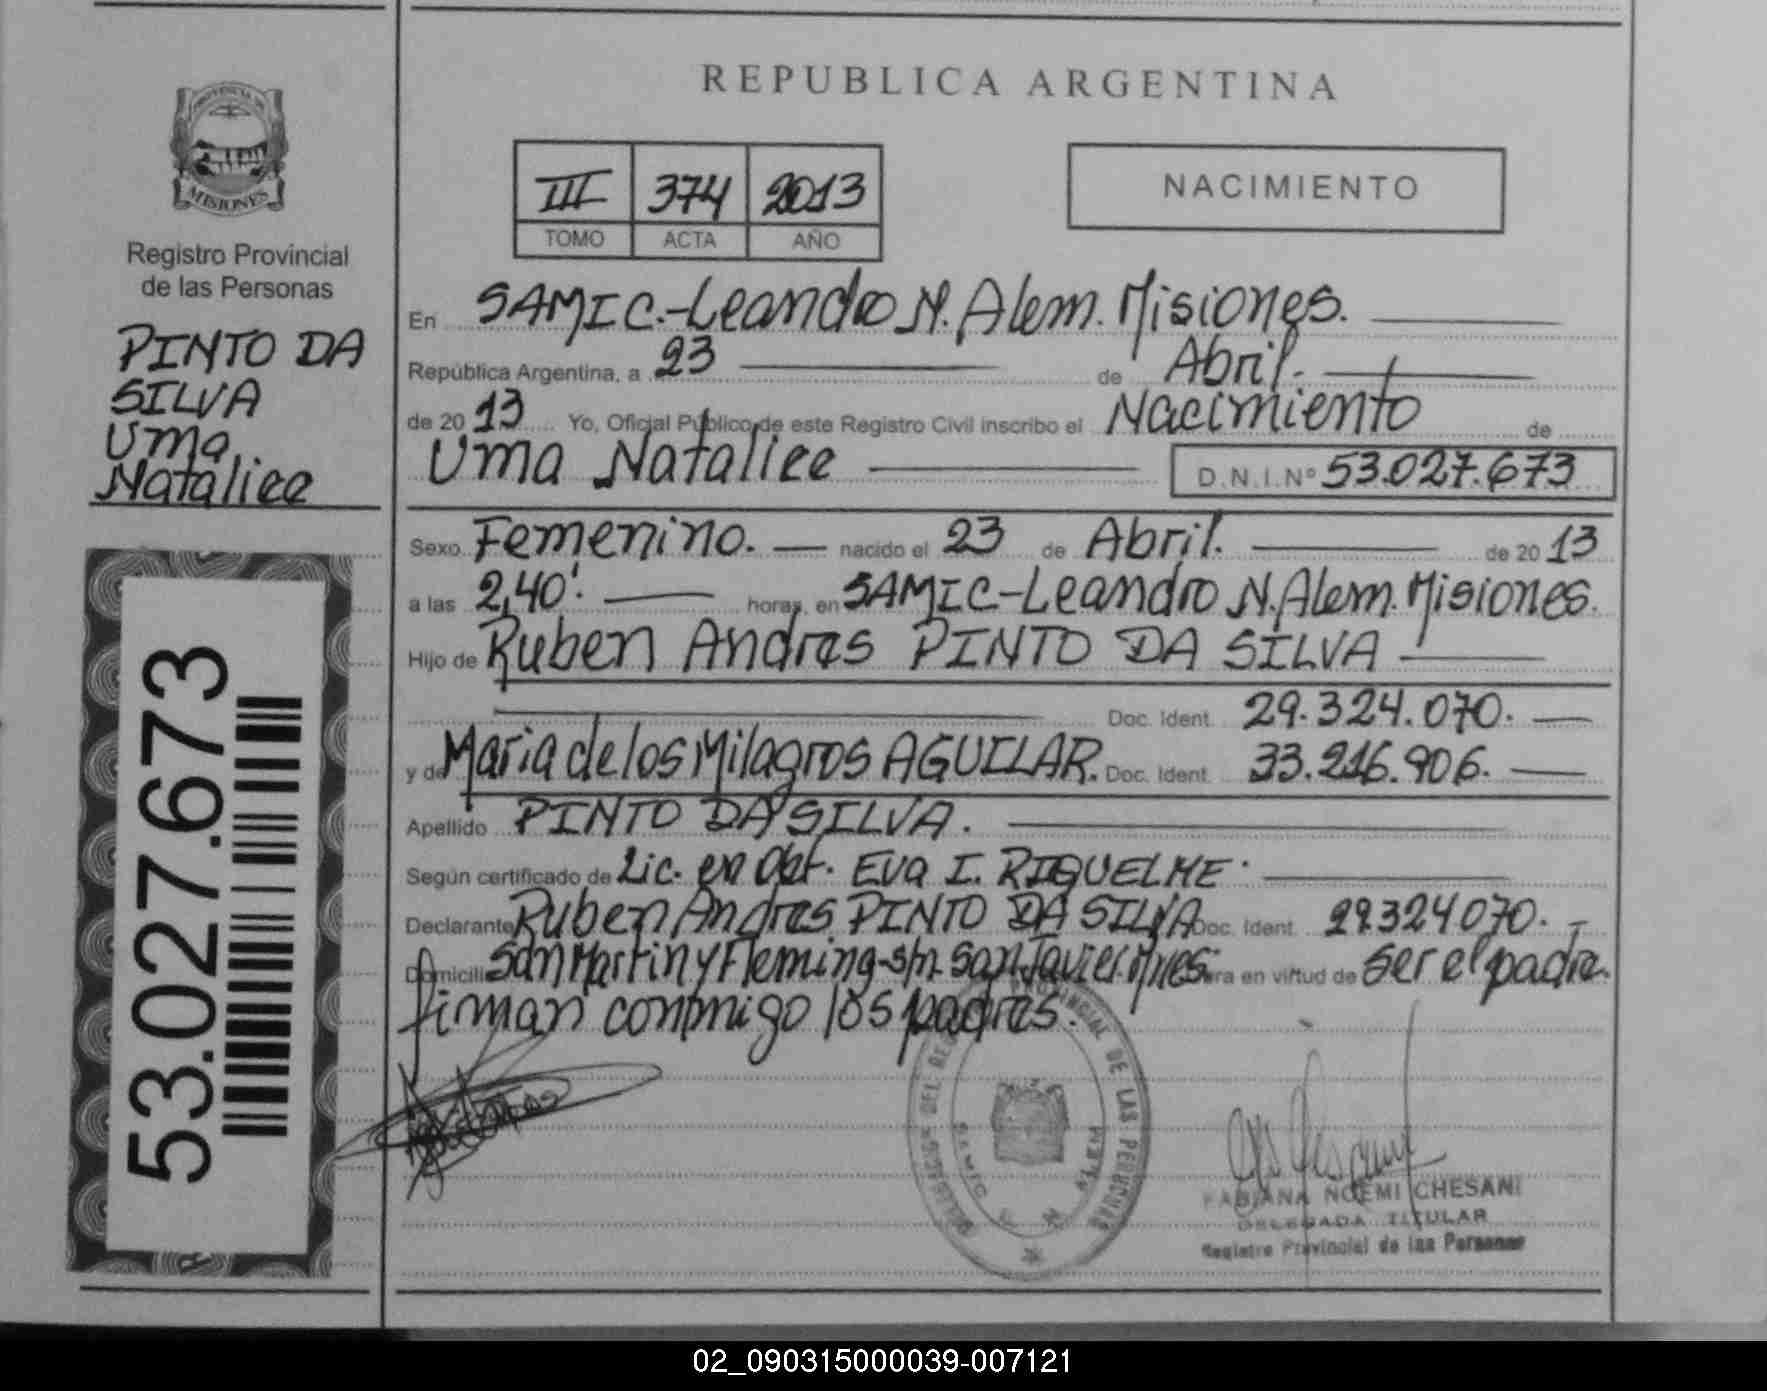 PROVINCIA DE
MISIONES
Registro Provincial
de las Personas
PINTO DA
SILVA
Uma
Nataliee
53.027.673
REPUBLICA ARGENTINA
III 374 2013
TOMO ACTA AÑO
NACIMIENTO
En SAMIC.-Leandro N. Alem. Misiones.
República Argentina, a 23 de Abril.
de 20 13 Yo, Oficial Público de este Registro Civil inscribo el Nacimiento de
Uma Nataliee D.N.I.Nº 53.027.673
Sexo Femenino. nacido el 23 de Abril. de 20 13
a las 2,40'. horas, en SAMIC-Leandro N. Alem. Misiones.
Hijo de Ruben Andres PINTO DA SILVA
Doc. Ident. 29.324.070.
y de Maria de los Milagros AGUILAR. Doc. Ident. 33.216.906.
Apellido PINTO DA SILVA.
Según certificado de Lic. en Obt. Eva I. RIQUELME.
Declarante Ruben Andres PINTO DA SILVA Doc. Ident. 29.324070.
Domicilio San Martin y Fleming-s/n. San Javier. Mnes. en virtud de Ser el padre.
firman conmigo los padres.
PROVINCIAL DE LAS PERSONAS
SAMIC
ALEM
FABIANA NOEMI CHESANI
DELEGADA TITULAR
Registro Provincial de las Personas
02_090315000039-007121